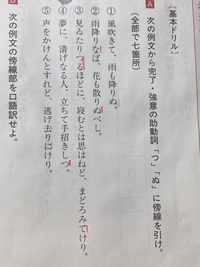 ［基本ドリル］
A 次の例文から完了・強意の助動詞「つ」「ぬ」に傍線を引け。
（全部で七箇所）
① 風吹きて、雨も降りぬ。
② 雨降りなば、花も散りぬべし。
③ 見るほどに、寝むとは思はねど、まどろみてけり。
④ 夢に、清げなる人、立ちて手招きしつ。
⑤ 声をかけんとすれど、逃げ去りにけり。
次の例文の傍線部を口語訳せよ。